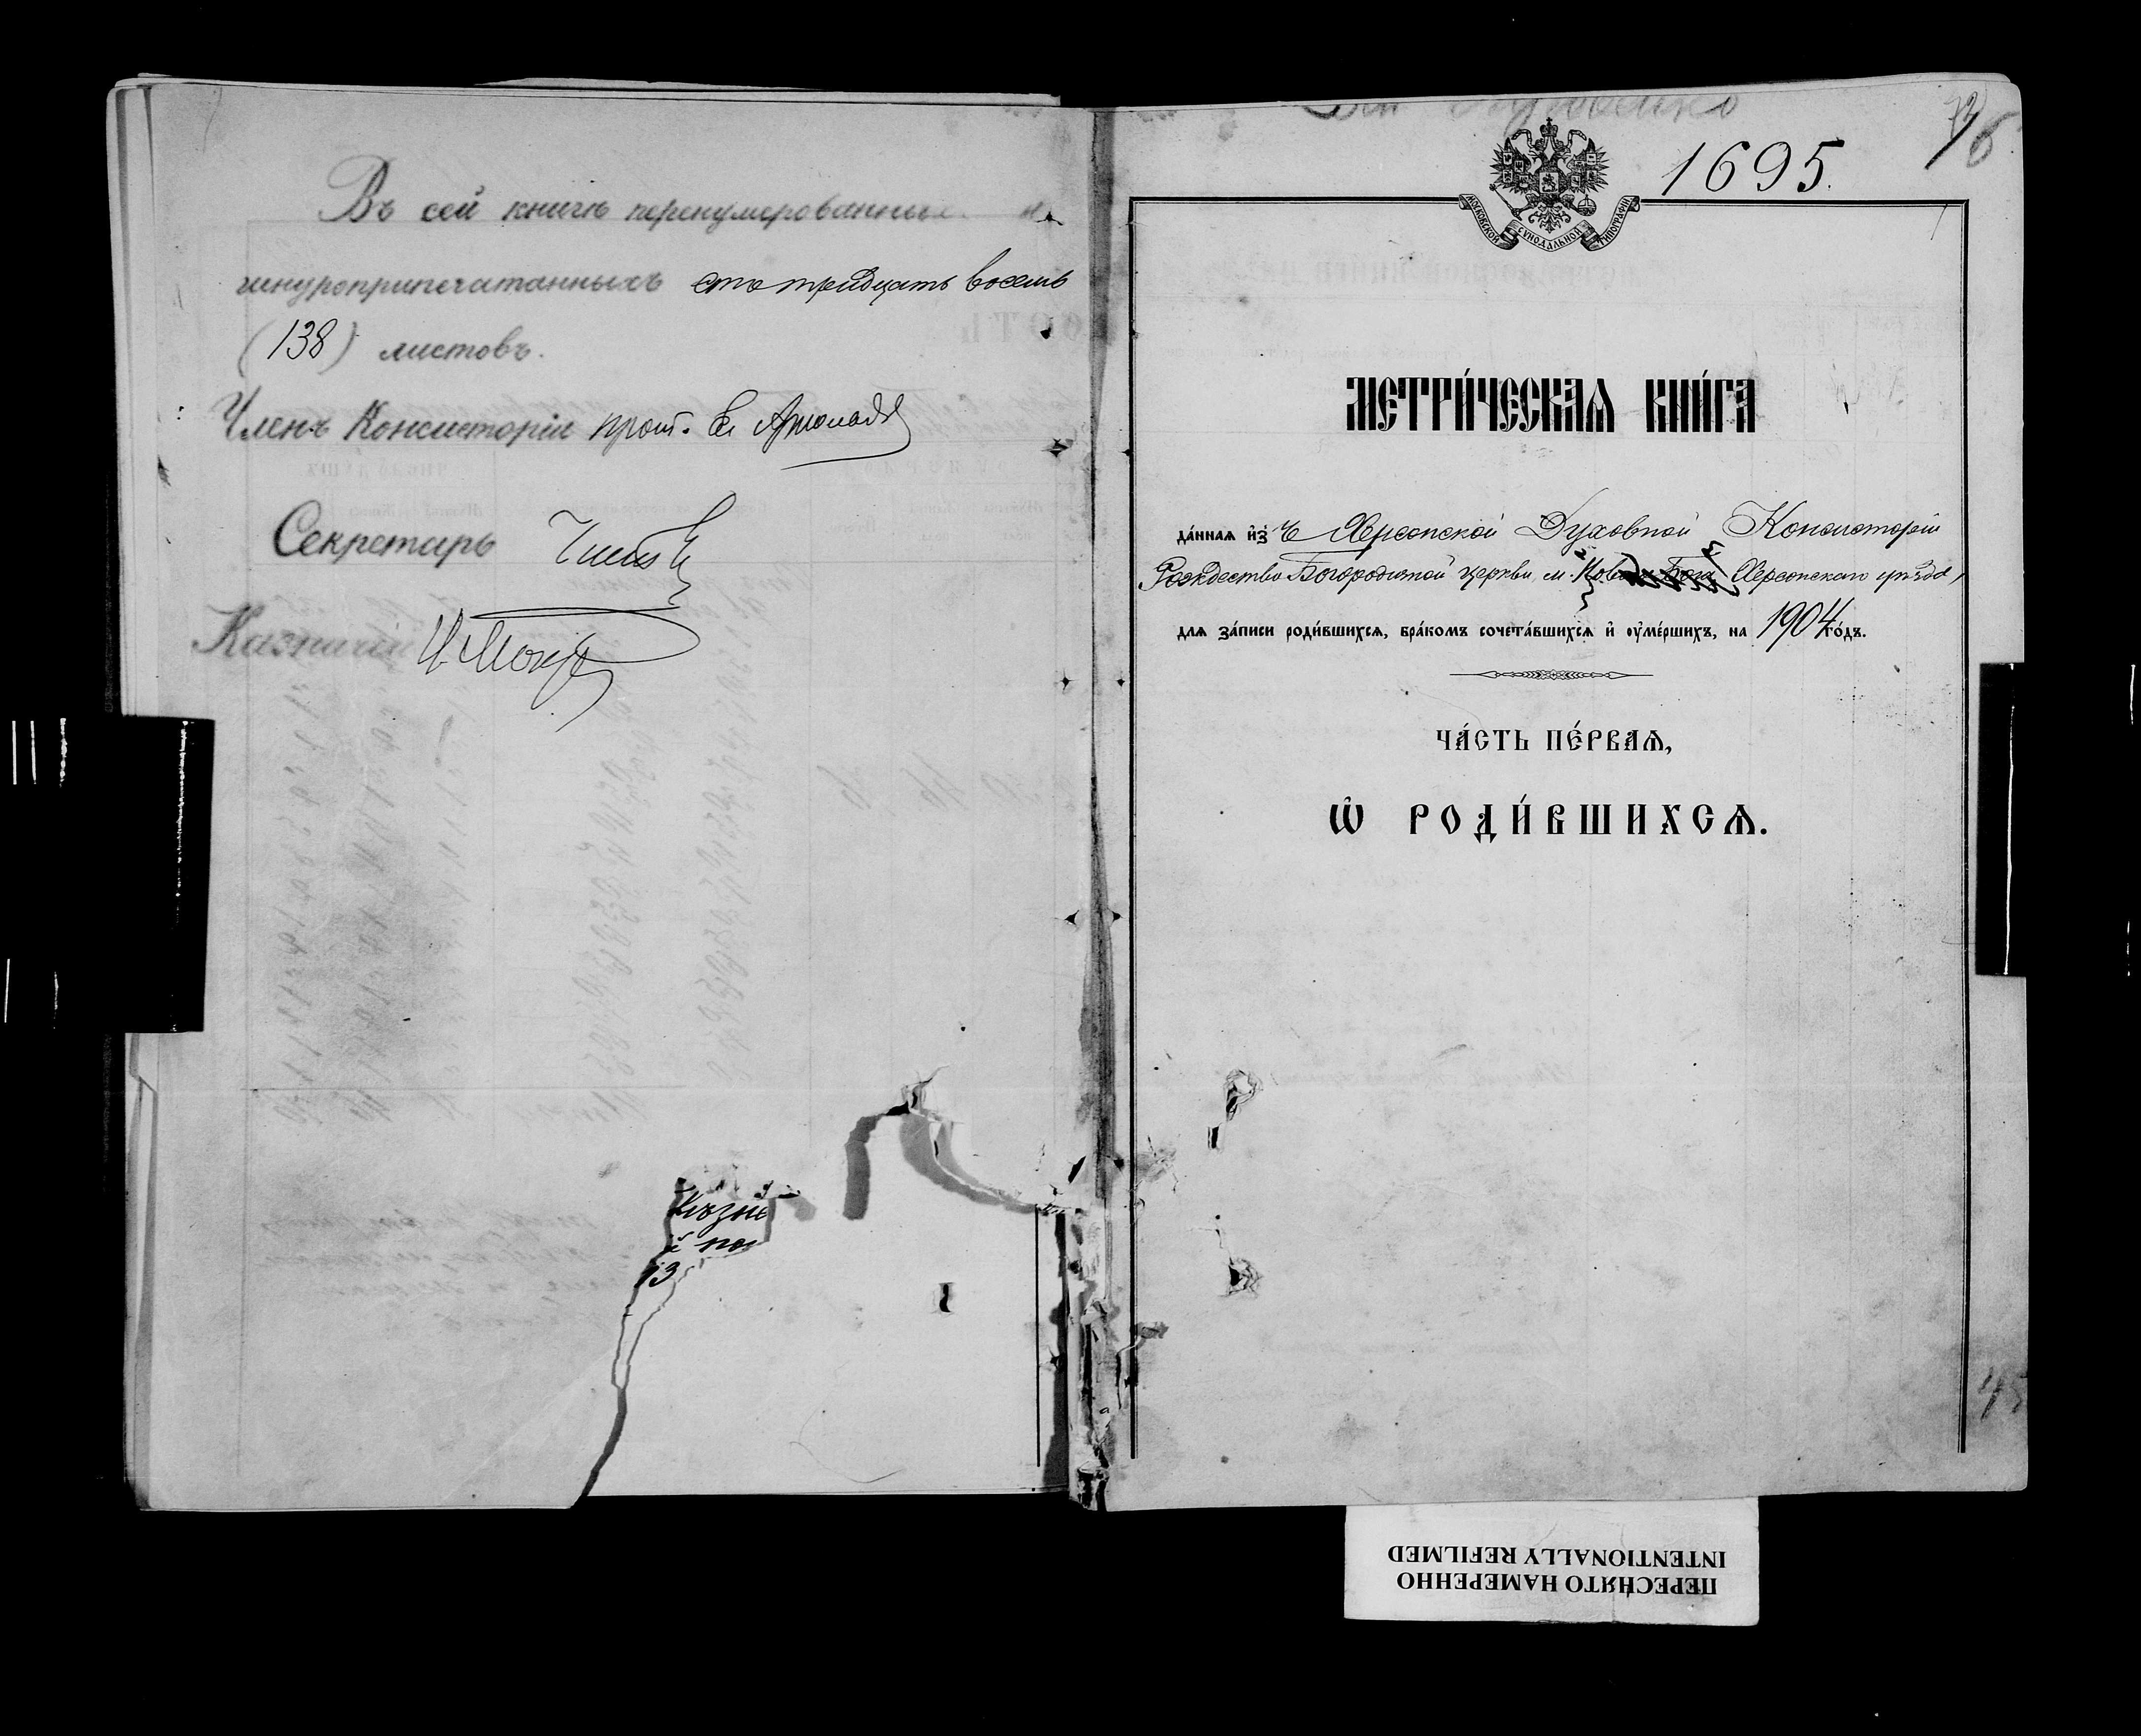 Въ сей книгѣ перенумерованныхъ и
шнуроприпечатанныхъ сто тридцать восемь
(138) листовъ.
Членъ Консисторіи прот.
Секретарь
Казначей
13
1695.
МОСКОВСКОЙ СѴНОДАЛЬНОЙ ТИПОГРАФІИ
МЕТРИ́ЧЕСКАѦ КНИ́ГА
да́ннаѧ и҆з̾ Херсонской Духовной Консисторіи
Рождество Богородичной церкви м. Херсонскаго уѣзда,
длѧ за́писи роди́вшихсѧ, бра́комъ сочета́вшихсѧ и҆ ᲂу҆ме́ршихъ, на 1904 го́дъ.
ЧА́СТЬ ПЕ́РВАѦ,
Ѽ РОДИ́ВШИХСѦ.
45
ПЕРЕСНЯТО НАМЕРЕННО
INTENTIONALLY REFILMED